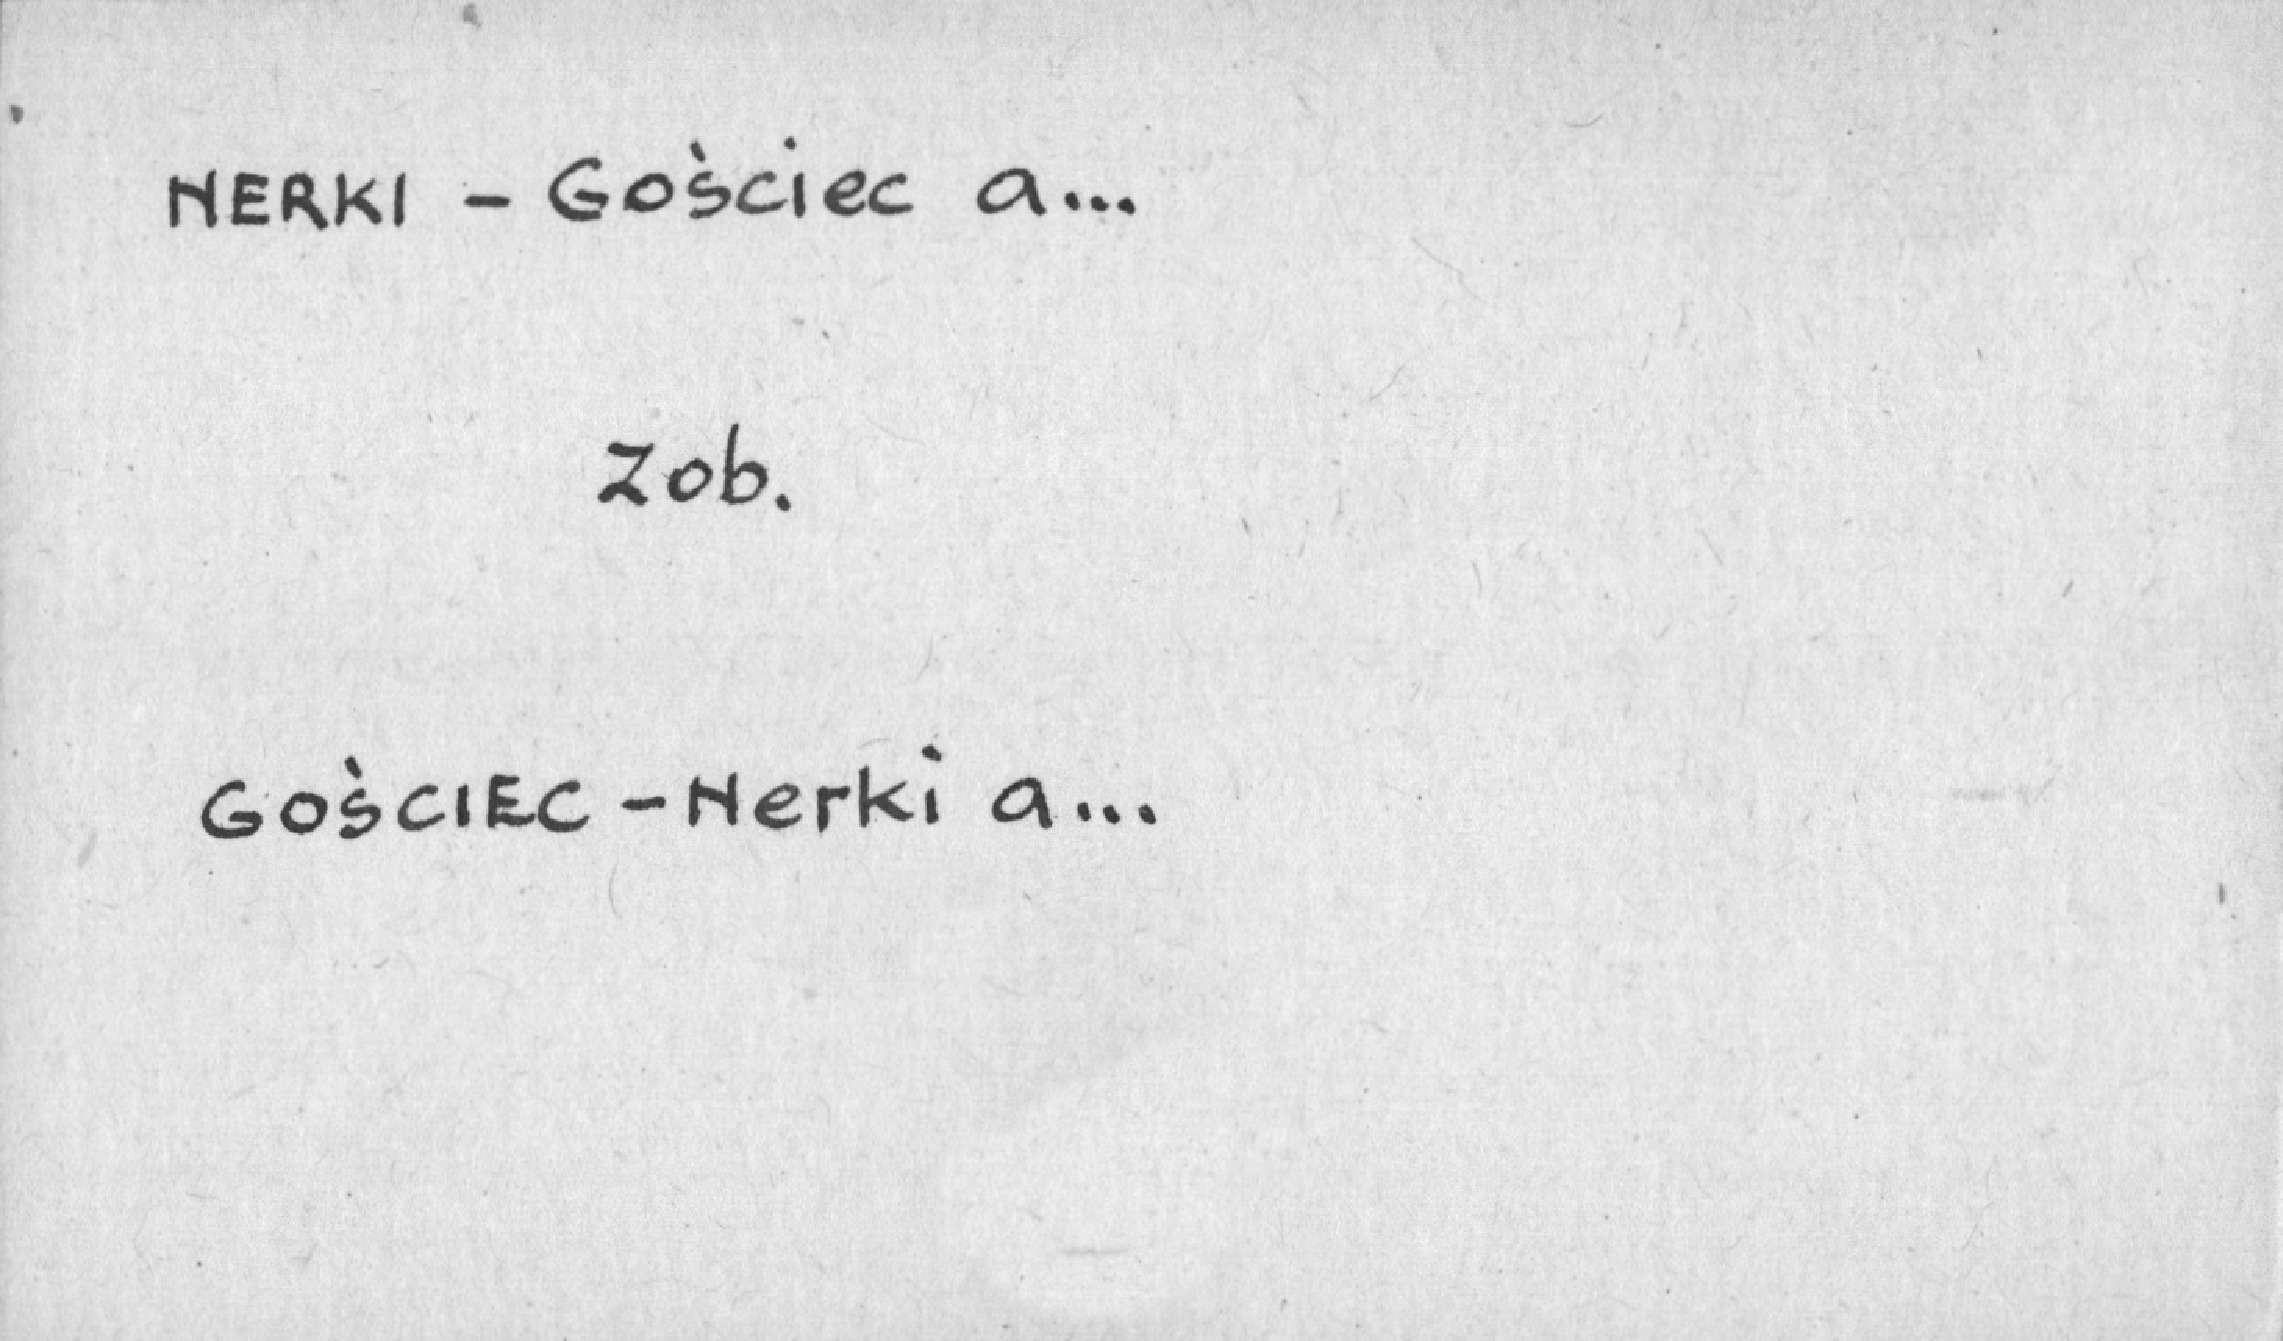 NERKI - Gościec a...
Zob.
GOŚCIEC - Nerki a...